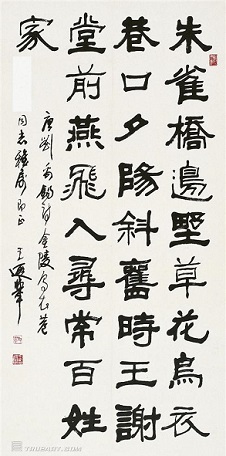 朱雀橋邊野草花烏衣
巷口夕陽斜舊時王謝
堂前燕飛入尋常百姓
家
唐劉禹錫詩金陵烏衣巷
同志雅屬即正 王遐舉